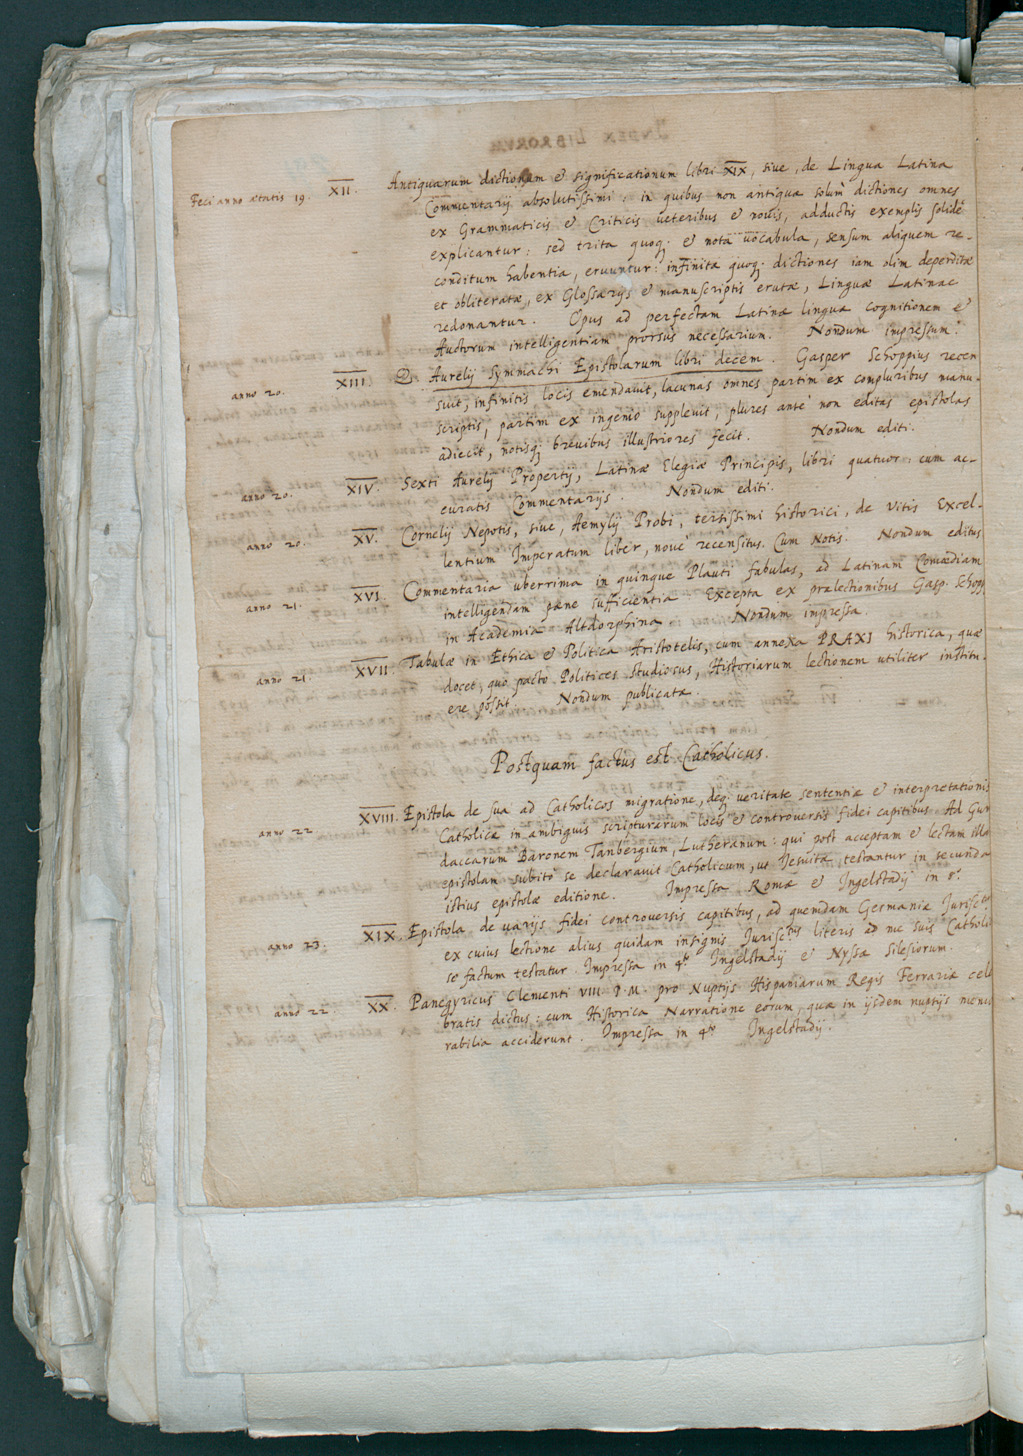 Feci anno ætatis 19. XII. Antiquarum dictionum & significationum libri XIX, siue, de Lingua Latina
Commentarij absolutissimi: in quibus non antiquæ solum dictiones omnes
ex Grammaticis & Criticis veteribus & nouis, adductis exemplis solidè
explicantur: sed trita quoq; & nota vocabula, sensum aliquem re-
conditum habentia, eruuntur: infinitæ quoq; dictiones iam olim deperditæ
et obliteratæ, ex Glossarijs & manuscriptis erutæ, Linguæ Latinae
redonantur. Opus ad perfectam Latinæ linguæ cognitionem &
Auctorum intelligentiam prorsus necessarium. Nondum impressum.
anno 20. XIII. Q. Aurelij Symmachi Epistolarum libri decem. Gasper Schoppius recen
suit, infinitis locis emendauit, lacunas omnes partim ex compluribus manu-
scriptis, partim ex ingenio suppleuit, plures antè non editas epistolas
adiecit, notisq; breuibus illustriores fecit. Nondum editi.
anno 20. XIV. Sexti Aurelij Propertij, Latinæ Elegiæ Principis, libri quatuor: cum ac-
curatis Commentarijs. Nondum editi.
anno 20. XV. Cornelij Nepotis, siue, Aemylij Probi, tersissimi historici, de Vitis Excel-
lentium Imperatum liber, nouè recensitus. Cum Notis. Nondum editus
anno 21. XVI. Commentaria uberrima in quinque Plauti fabulas, ad Latinam Comœdiam
intelligendam pæne sufficientia. Excepta ex prælectionibus Gasp. Schopp
in Academia Altdorphina. Nondum impressa.
anno 21. XVII. Tabulæ in Ethica & Politica Aristotelis, cum annexa PRAXI historica, quæ
docet, quo pacto Politices studiosus, Historiarum lectionem utiliter institu-
ere possit. Nondum publicatæ.
Postquam factus est Catholicus.
anno 22 XVIII. Epistola de sua ad Catholicos migratione, deq; veritate sententiæ & interpretationis
Catholicæ in ambiguis scripturarum locis & controversis fidei capitibus. Ad Gun
daccarum Baronem Tanbergium, Lutheranum: qui post acceptam & lectam
epistolam subitò se declarauit Catholicum, ut Iesuitæ testantur in secunda
istius epistolæ editione. Impressa Romæ & Ingelstadij in 8.°
anno 23. XIX. Epistola de varijs fidei controversis capitibus, ad quemdam Germaniæ
ex cuius lectione alius quidam insignis Jurisc.tus literis ad me suis Catholi
se factum testatur. Impressa in 4.to Ingelstadij & Nyssæ Silesiorum.
anno 22. XX. Panegyricus Clementi VIII. P.M. pro Nuptijs Hispaniarum Regis Ferrariæ cele
bratis dictus: cum Historica Narratione eorum, quæ in ijsdem nuptijs memo
rabilia acciderunt. Impressa in 4.to Ingelstadij.